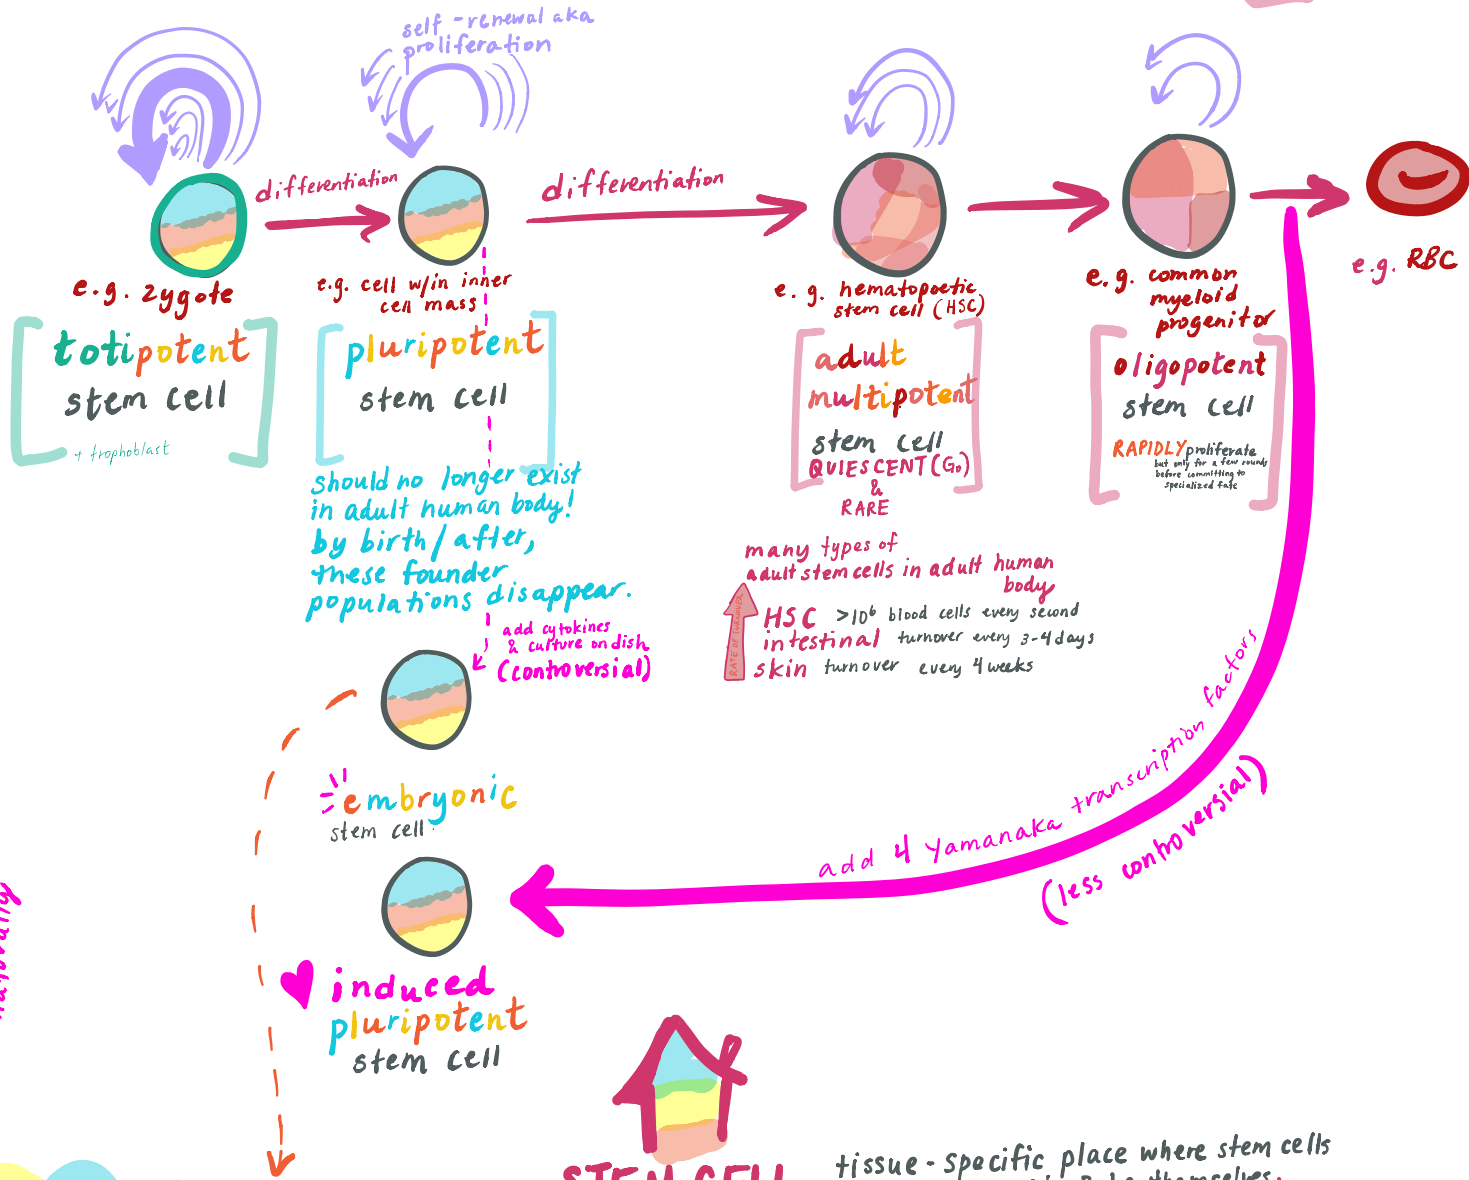 self-renewal aka
proliferation
differentiation
differentiation
e.g. zygote
totipotent
stem cell
+ trophoblast
e.g. cell w/in inner
cell mass
pluripotent
stem cell
should no longer exist
in adult human body!
by birth/after,
these founder
populations disappear.
add cytokines
& culture on dish
(controversial)
embryonic
stem cell
induced
pluripotent
stem cell
e.g. hematopoetic
stem cell (HSC)
adult
multipotent
stem cell
QUIESCENT (G₀)
&
RARE
many types of
adult stem cells in adult human
body
RATE OF TURNOVER
HSC >10⁶ blood cells every second
intestinal turnover every 3-4 days
skin turnover every 4 weeks
e.g. common
myeloid
progenitor
oligopotent
stem cell
RAPIDLY proliferate
but only for a few rounds
before committing to
specialized fate
e.g. RBC
add 4 Yamanaka transcription factors
(less controversial)
STEM CELL
tissue-specific place where stem cells
themselves.